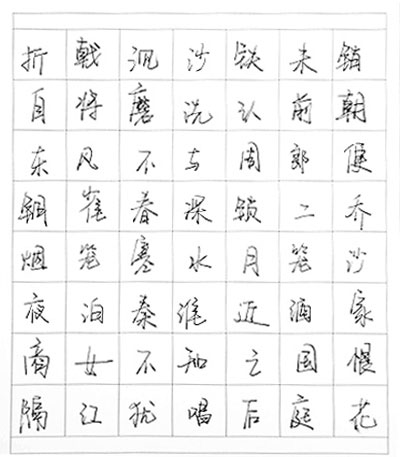 折戟沉沙铁未销
自将磨洗认前朝
东风不与周郎便
铜雀春深锁二乔
烟笼寒水月笼沙
夜泊秦淮近酒家
商女不知亡国恨
隔江犹唱后庭花